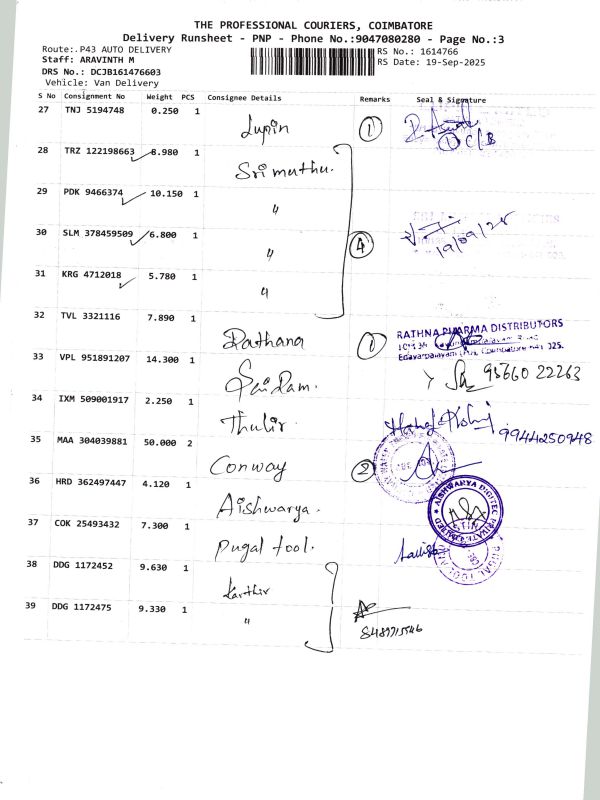 THE PROFESSIONAL COURIERS, COIMBATORE
Delivery Runsheet - PNP - Phone No.:9047080280 - Page No.:3
Route:.P43 AUTO DELIVERY
RS No.: 1614766
Staff: ARAVINTH M
RS Date: 19-Sep-2025
DRS No.: DCJB161476603
Vehicle: Van Delivery
S No Consignment No Weight PCS Consignee Details Remarks Seal & Signature
27 TNJ 5194748 0.250 1 Lupin 1
1 C/B
28 TRZ 122198663 8.980 1 Sri muthu.
29 PDK 9466374 10.150 1 〃
30 SLM 378459509 6.800 1 〃 4 19/09/25
31 KRG 4712018 5.780 1 〃
32 TVL 3321116 7.890 1 Rathana 1
RATHNA PHARMA DISTRIBUTORS
33 VPL 951891207 14.300 1 Sai Ram. 95660 22263
34 IXM 509001917 2.250 1 Thulir. 9944250948
35 MAA 304039881 50.000 2 Conway 2
36 HRD 362497447 4.120 1 Aishwarya.
AISHWARYA DIGITEC PRIVATE LIMITED
37 COK 25493432 7.300 1 Pugal tool.
38 DDG 1172452 9.630 1 Karthir
39 DDG 1172475 9.330 1 〃